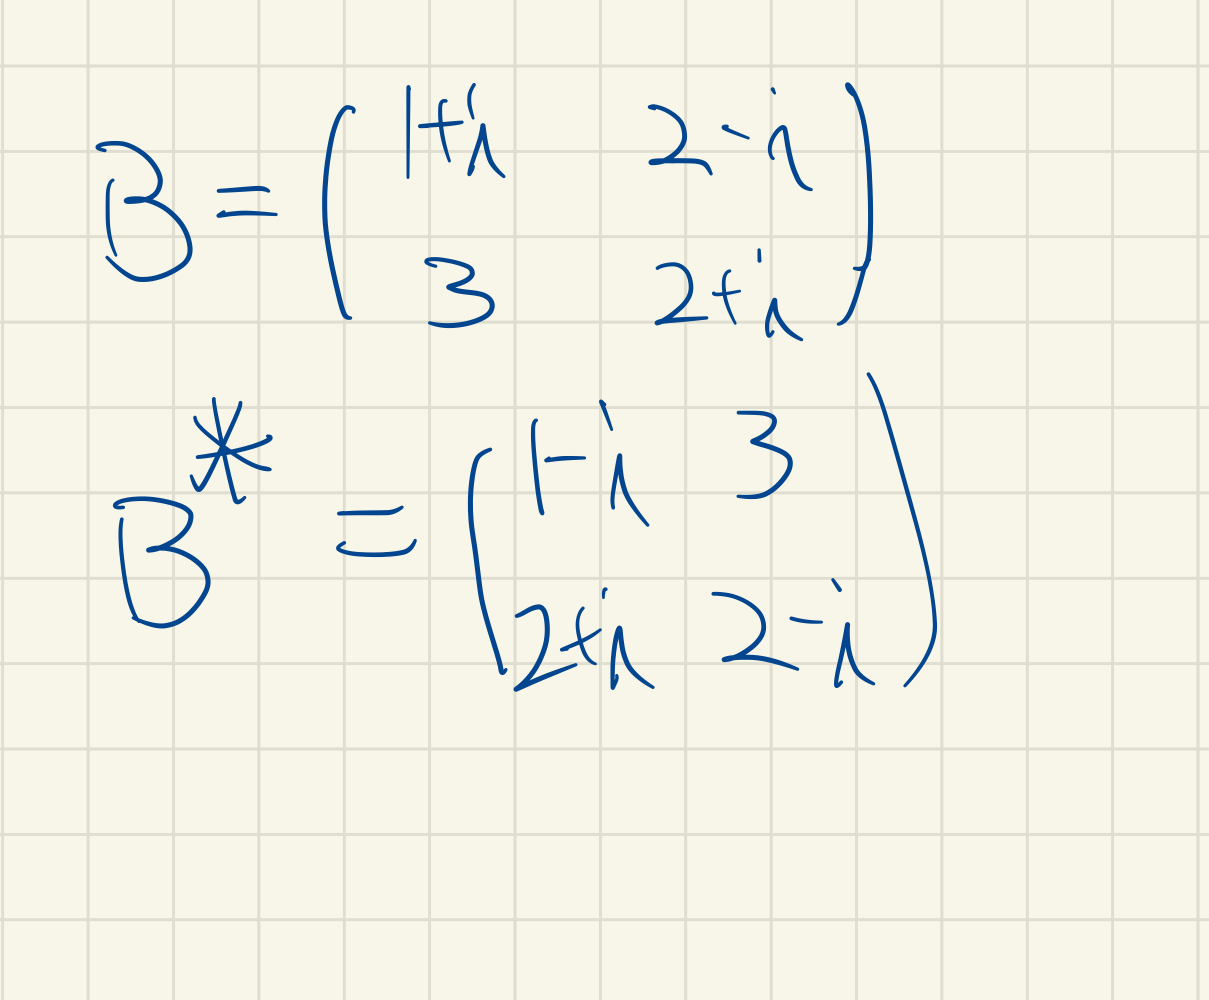 B = ( 1+i 2-i
3 2+i )
B* = ( 1-i 3
2+i 2-i )